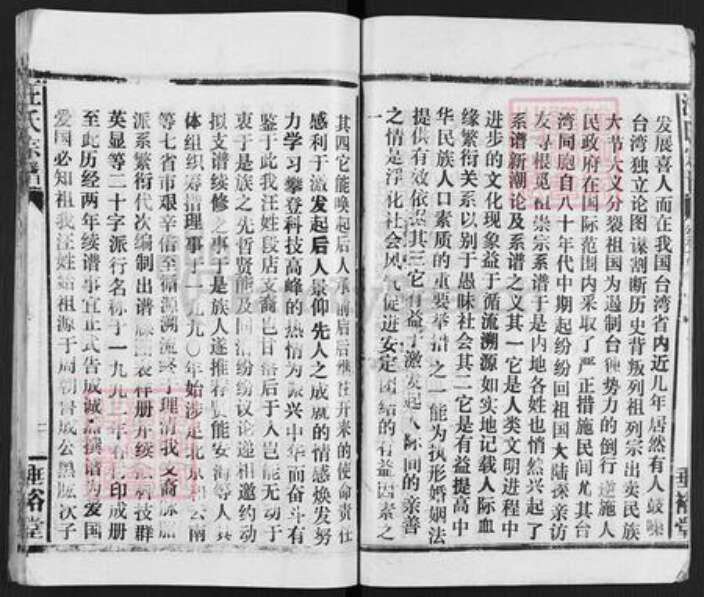 发展喜人而在我国台湾省内近几年居然有人鼓噪
台湾独立论图谋割断历史背叛列祖列宗出卖民族
大节大义分裂祖国为遏制台独势力的倒行逆施人
民政府在国际范围内采取了严正措施民间尤其台
湾同胞自八十年代中期起纷纷回祖国大陆探亲访
友寻根觅祖崇宗系谱于是内地各姓也悄然兴起了
系谱新潮论及系谱之义其一它是人类文明进程中
进步的文化现象益于循流溯源如实地记载人际血
缘繁衍关系以别于愚昧社会其二它是有益提高中
华民族人口素质的重要举措之一能为执形婚姻法
提供有效依据其三它有益于激发起人际间的亲善
之情是浮化社会风气促进安定团结的有益因素之
一
其四它能唤起后人承前启后继往开来的使命责任
感利于激发起后人景仰先人之成就的情感焕发努
力学习攀登科技高峰的热情为振兴中华而奋斗有
鉴于此我汪姓段店支裔岂甘落后于人岂能无动于
衷于是族之先哲贤能及国清纷纷议论递相邀约动
拟支谱续修之事于是族人遂推荐贤能安海等人具
体组织筹措理事于一九九〇年始涉足北京 云南
等七省市艰辛备至循源溯流终于理清我支裔脉脉
派系繁衍代次编制出谱 表件册并续 科技群
英显等二十字派行名称于一九九 年 印成册
至此历经两年续谱事宜正式告成诚 撰谱为爱国
爱国必知祖我汪姓始祖源于周朝鲁成公黑肱次子
汪氏宗谱
二
垂裕堂
垂裕堂